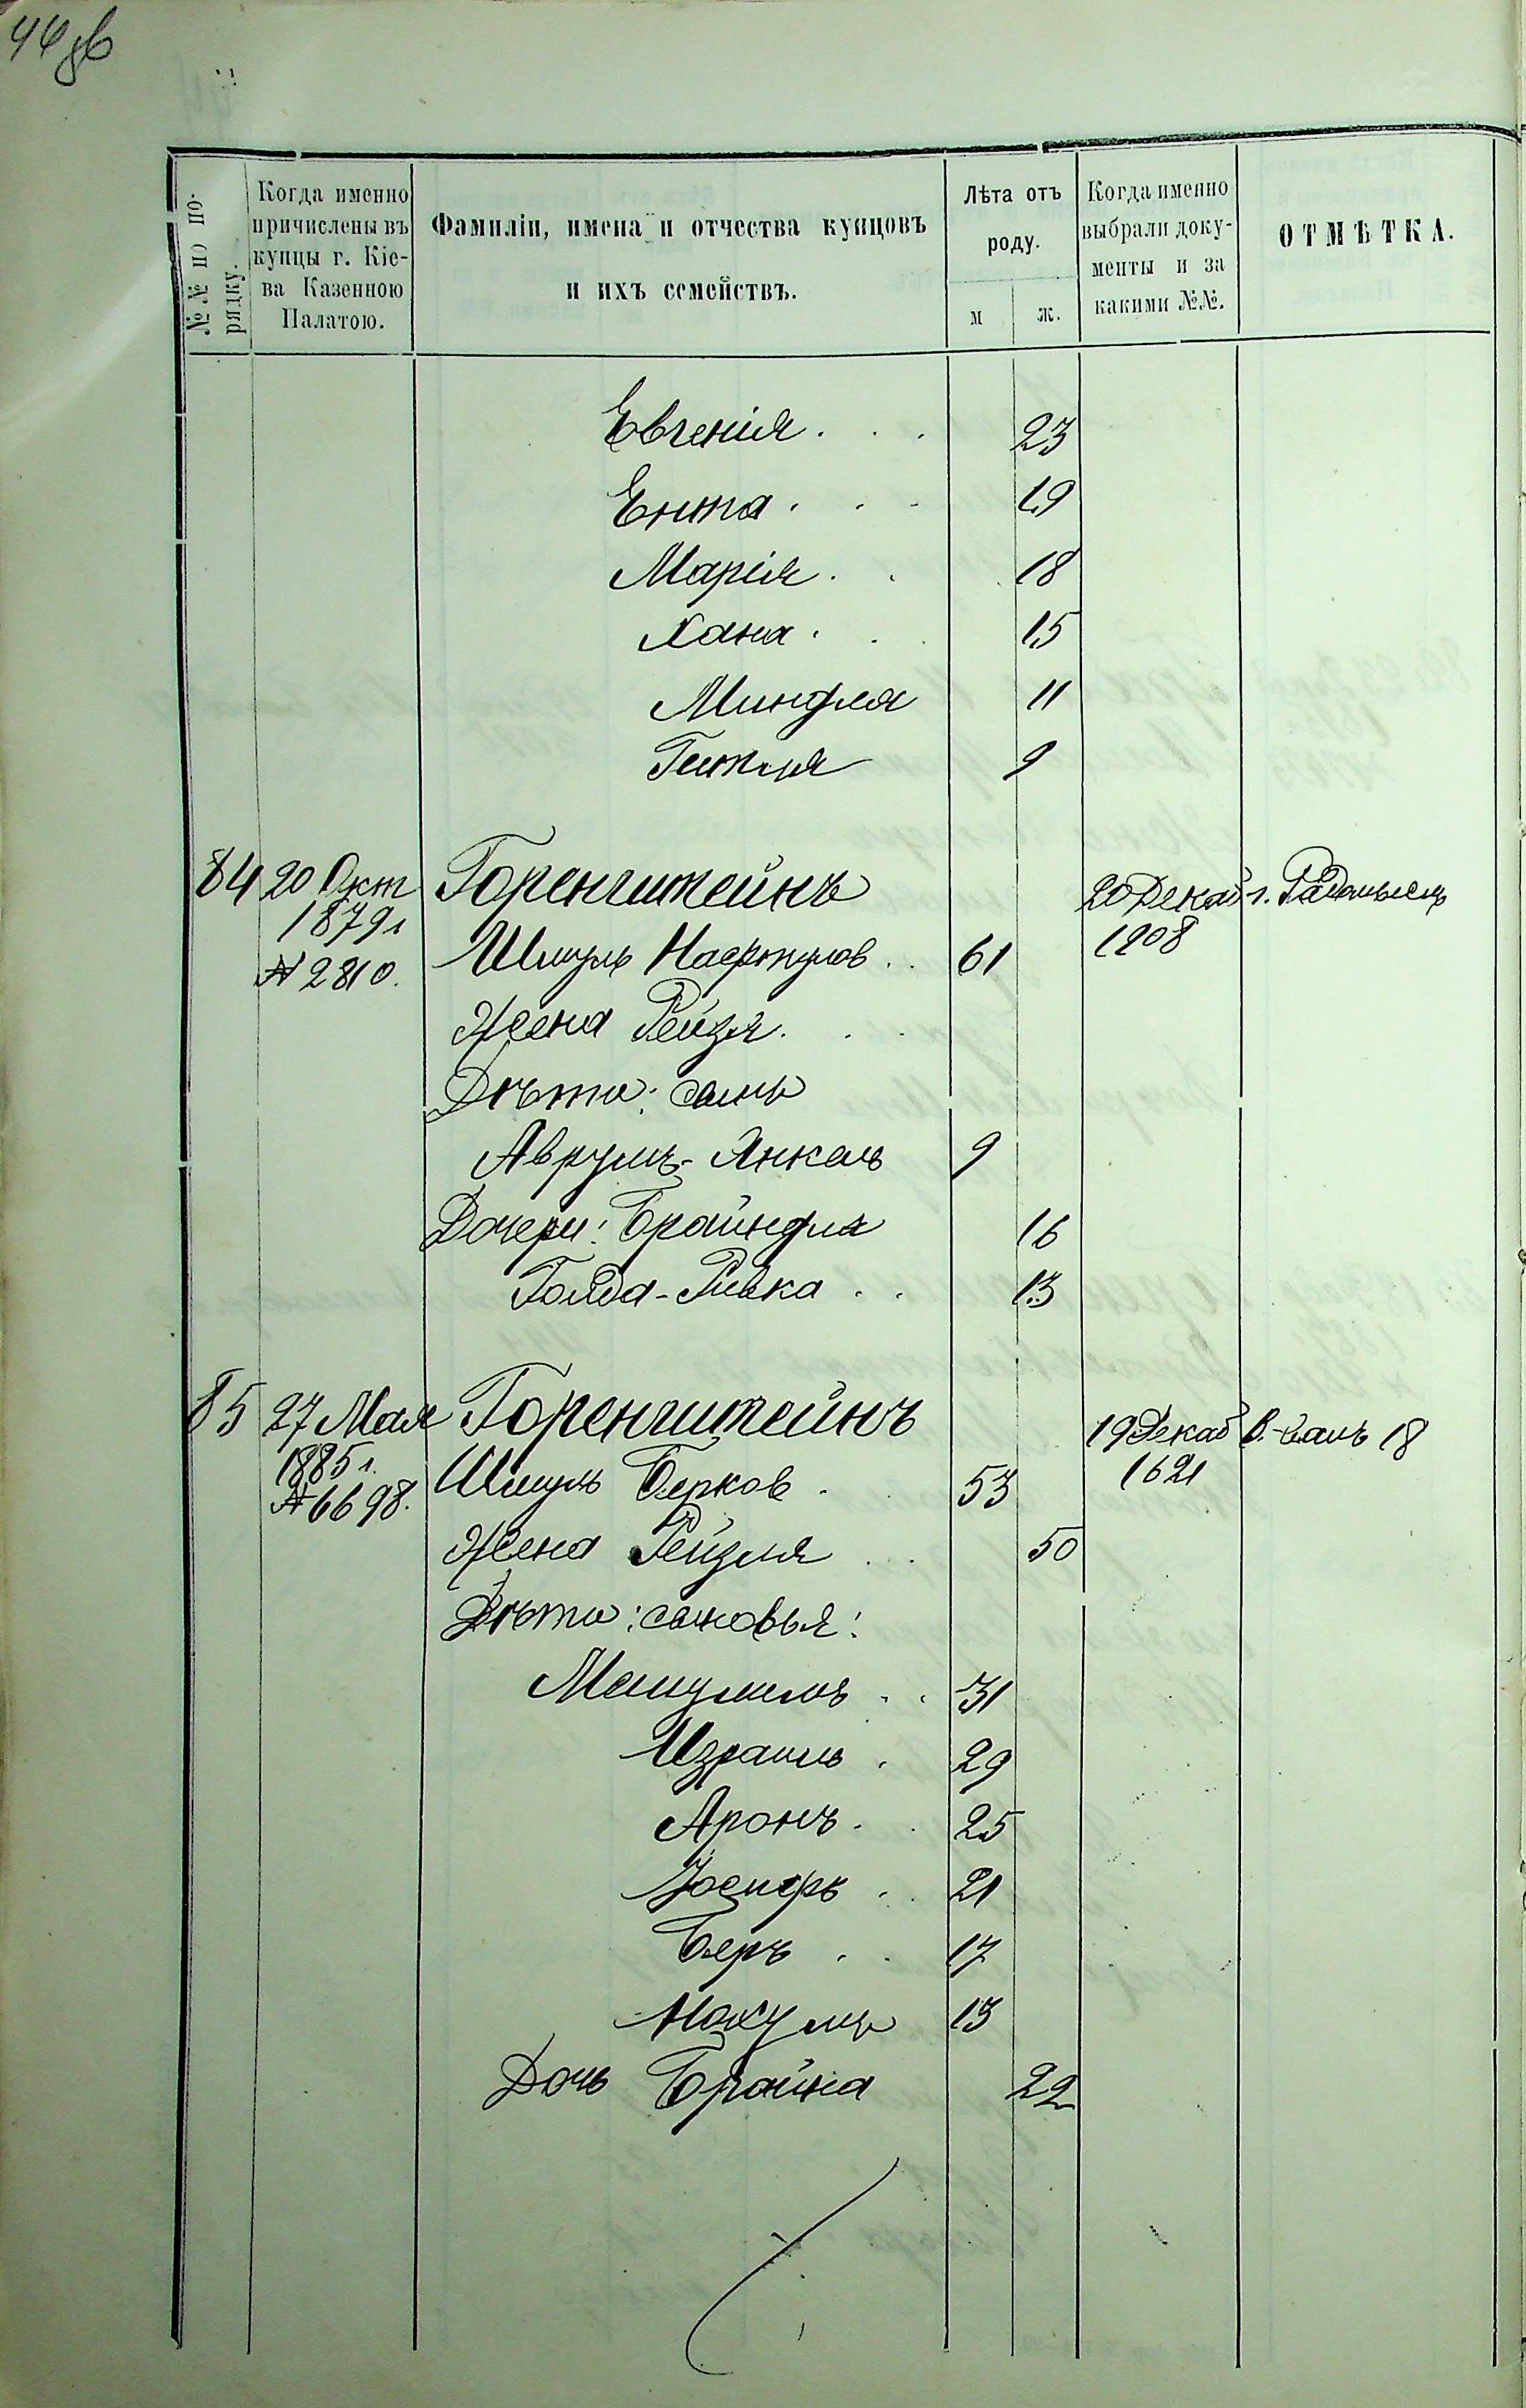 №№ по по-
рядку.
Когда именно
причислены въ
купцы г. Кіе-
ва Казенною
Палатою.
Фамиліи, имена и отчества купцовъ
и ихъ семействъ.
Лѣта отъ
роду.
м ж.
Когда именно
выбрали доку-
менты и за
какими №№.
ОТМѢТКА.
Евгенія . . . 23
Ента . . . 19
Марія . . 18
Хана . . . 15
Миндля 11
Гитля 9
84 20 Окт Горенштейнъ 20 Декаб г. Радомысль
1879 г 1908
№ 2810. Шмуль Нафтулов . . 61
Жена Рейзя . . .
Дѣти: сынъ
Аврумъ-Янкель 9
Дочери: Брайндля 16
Голда-Ривка . . 13
85 27 Мая Горенштейнъ 19 Декаб 18
1885 г. 1621
№ 6698. Шмуль Берков . . 53
Жена Рейзля . . . 50
Дѣти: сыновья:
Мешулимъ . . 31
Израиль . 29
Аронъ . . 25
Іосифъ . . 21
Беръ . . 17
Нахумъ 13
Дочь Брайна 22